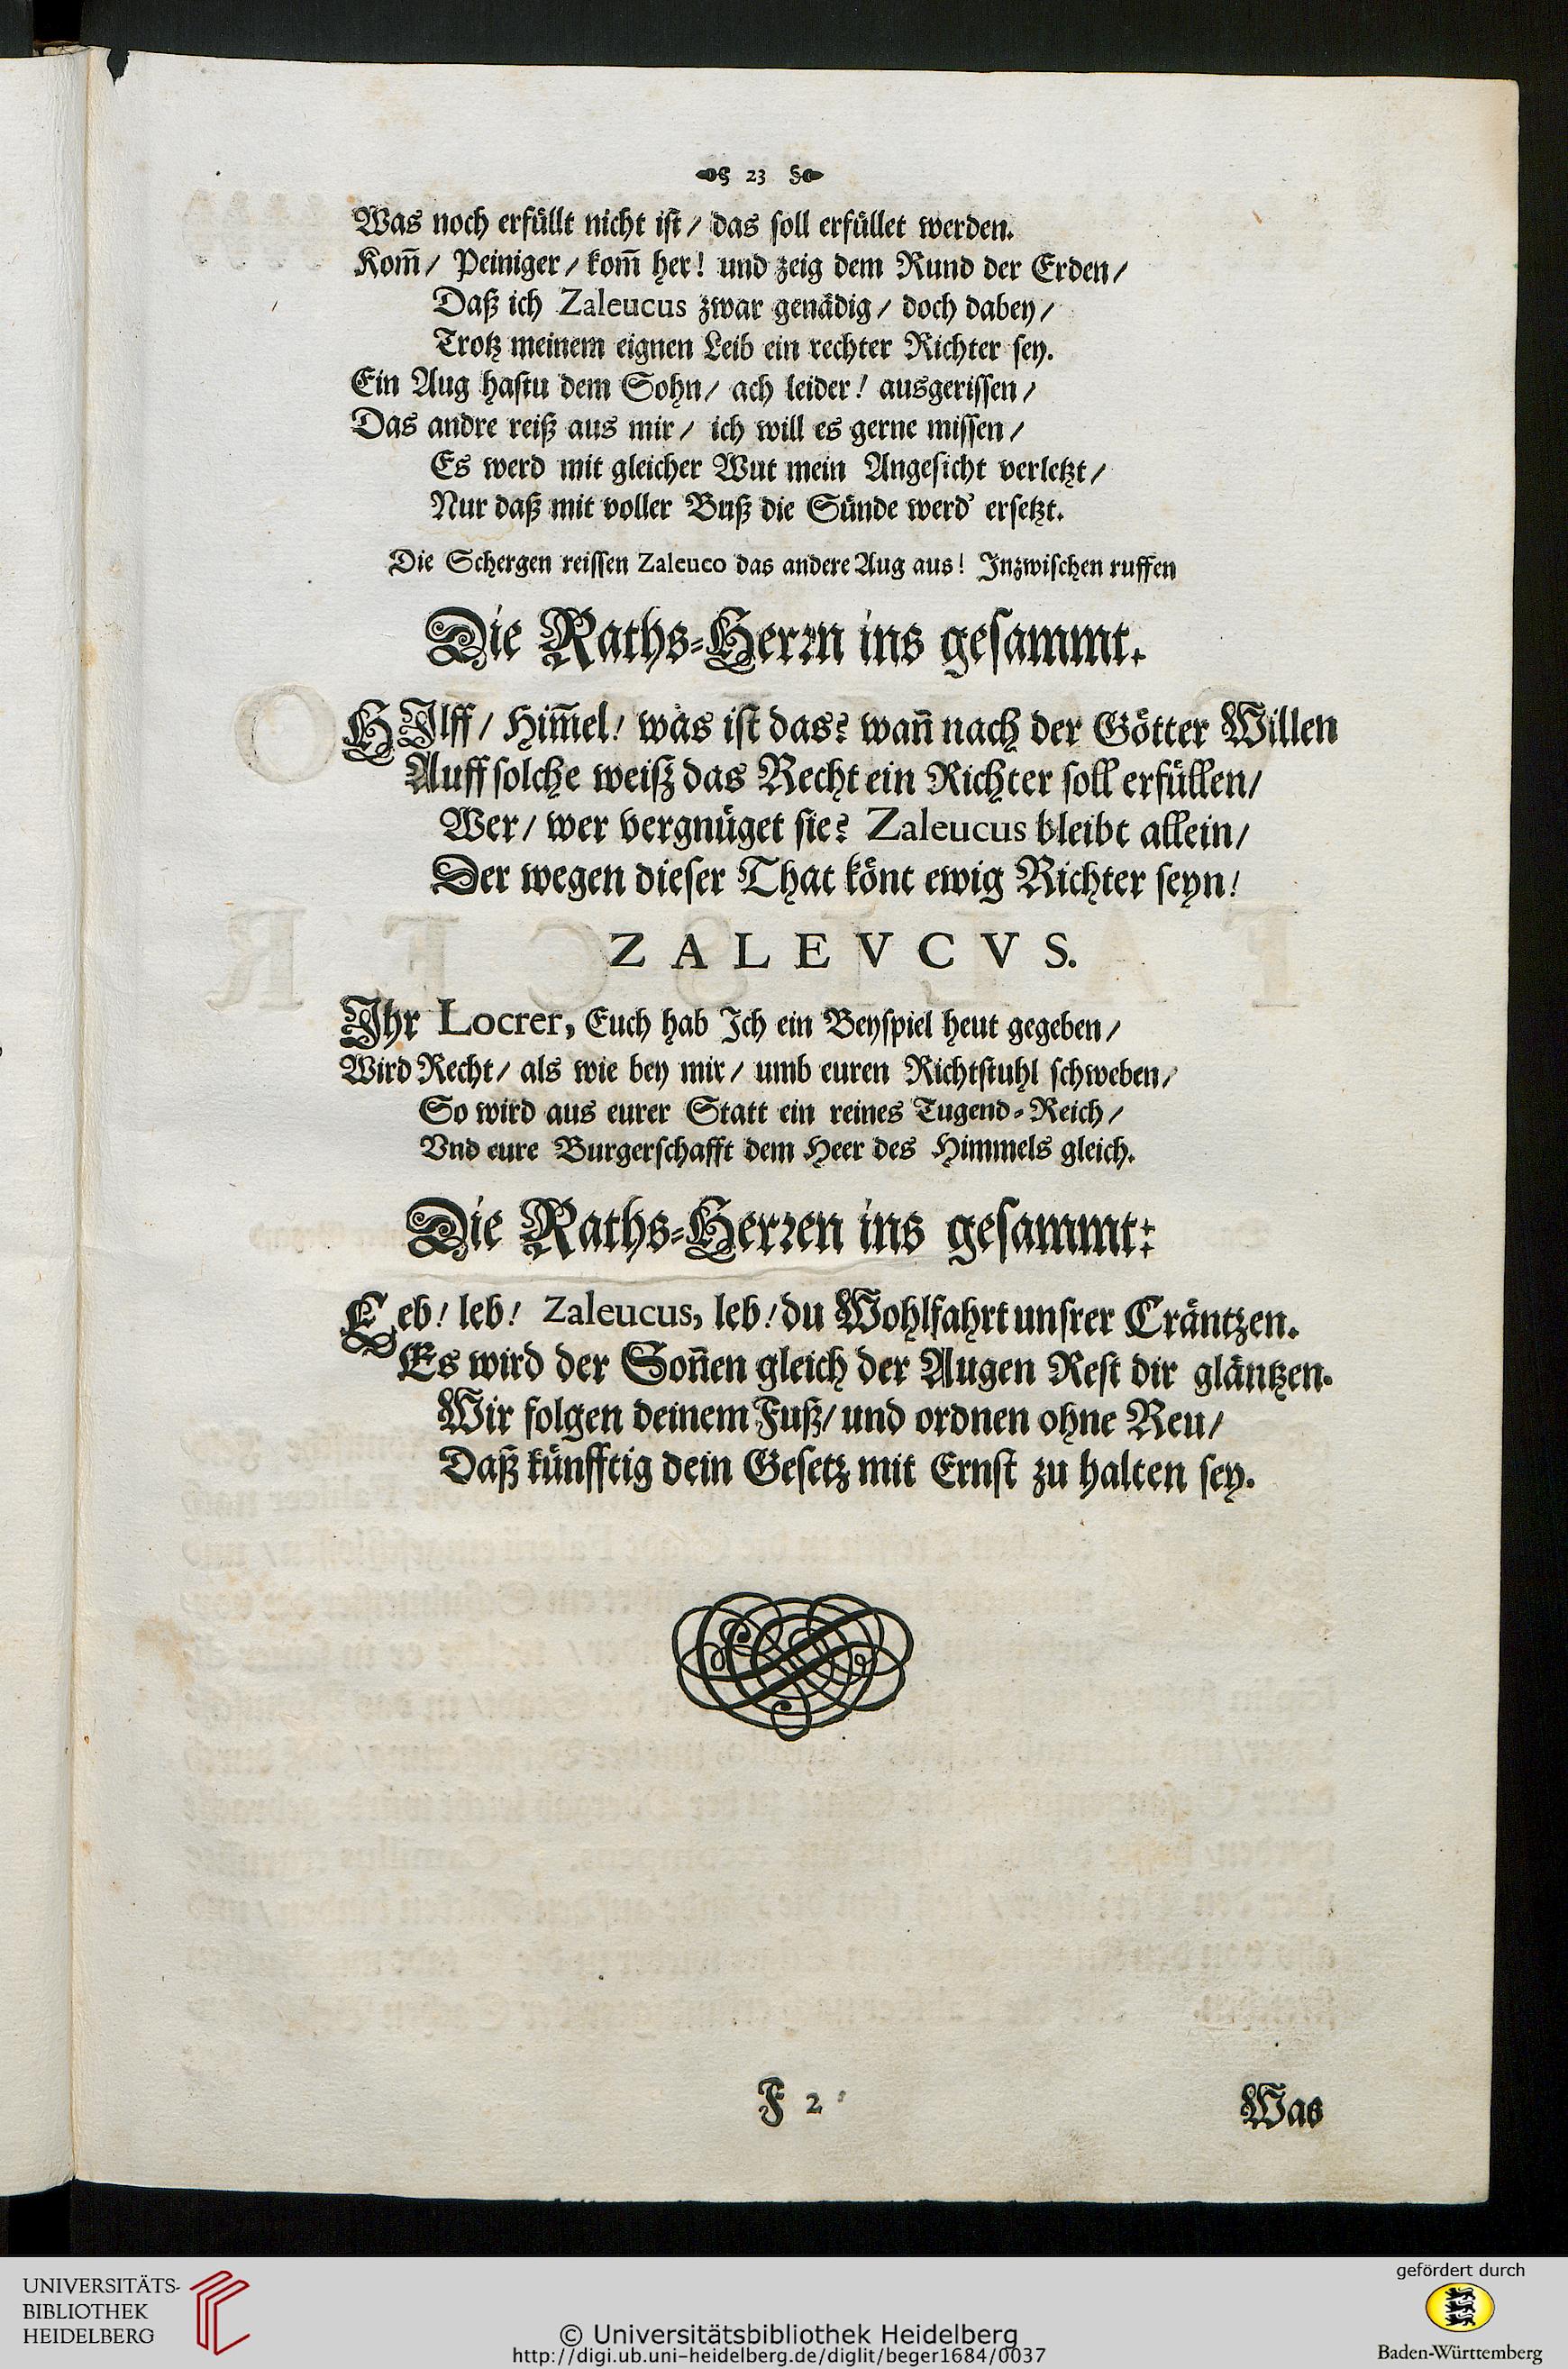 23
Was noch erfüllt nicht ist / das soll erfüllet werden.
Kom̄ / Peiniger / kom̄ her! und zeig dem Rund der Erden /
Daß ich Zaleucus zwar genädig / doch dabey /
Trotz meinem eignen Leib ein rechter Richter sey.
Ein Aug hastu dem Sohn / ach leider! ausgerissen /
Das andre reiß aus mir / ich will es gerne missen /
Es werd mit gleicher Wut mein Angesicht verletzt /
Nur daß mit voller Buß die Sünde werd' ersetzt.
Die Schergen reissen Zaleuco das andere Aug aus! Inzwischen ruffen
Die Raths-Herrn ins gesammt.
HIlff / Him̄el! was ist das? wan̄ nach der Götter Willen
Auff solche weiß das Recht ein Richter soll erfüllen /
Wer / wer vergnüget sie? Zaleucus bleibt allein /
Der wegen dieser That könt ewig Richter seyn!
ZALEVCVS.
Ihr Locrer, Euch hab Ich ein Beyspiel heut gegeben /
Wird Recht / als wie bey mir / umb euren Richtstuhl schweben /
So wird aus eurer Statt ein reines Tugend-Reich /
Vnd eure Burgerschafft dem Heer des Himmels gleich.
Die Raths-Herren ins gesammt:
Leb! leb! Zaleucus, leb! du Wohlfahrt unsrer Cräntzen.
Es wird der Son̄en gleich der Augen Rest dir gläntzen.
Wir folgen deinem Fuß / und ordnen ohne Reu /
Daß künfftig dein Gesetz mit Ernst zu halten sey.
F 2
Was
UNIVERSITÄTS-
BIBLIOTHEK
HEIDELBERG
© Universitätsbibliothek Heidelberg
http://digi.ub.uni-heidelberg.de/diglit/beger1684/0037
gefördert durch
Baden-Württemberg